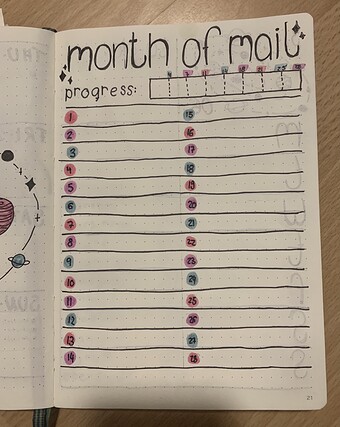 month of mail
progress:
1 15
2 16
3 17
4 18
5 19
6 20
7 21
8 22
9 23
10 24
11 25
12 26
13 27
14 28
21